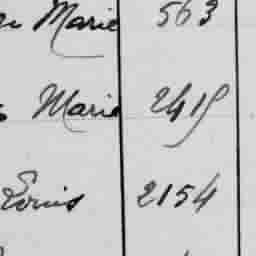 Marie 563
Marie 2419
Louis 2154